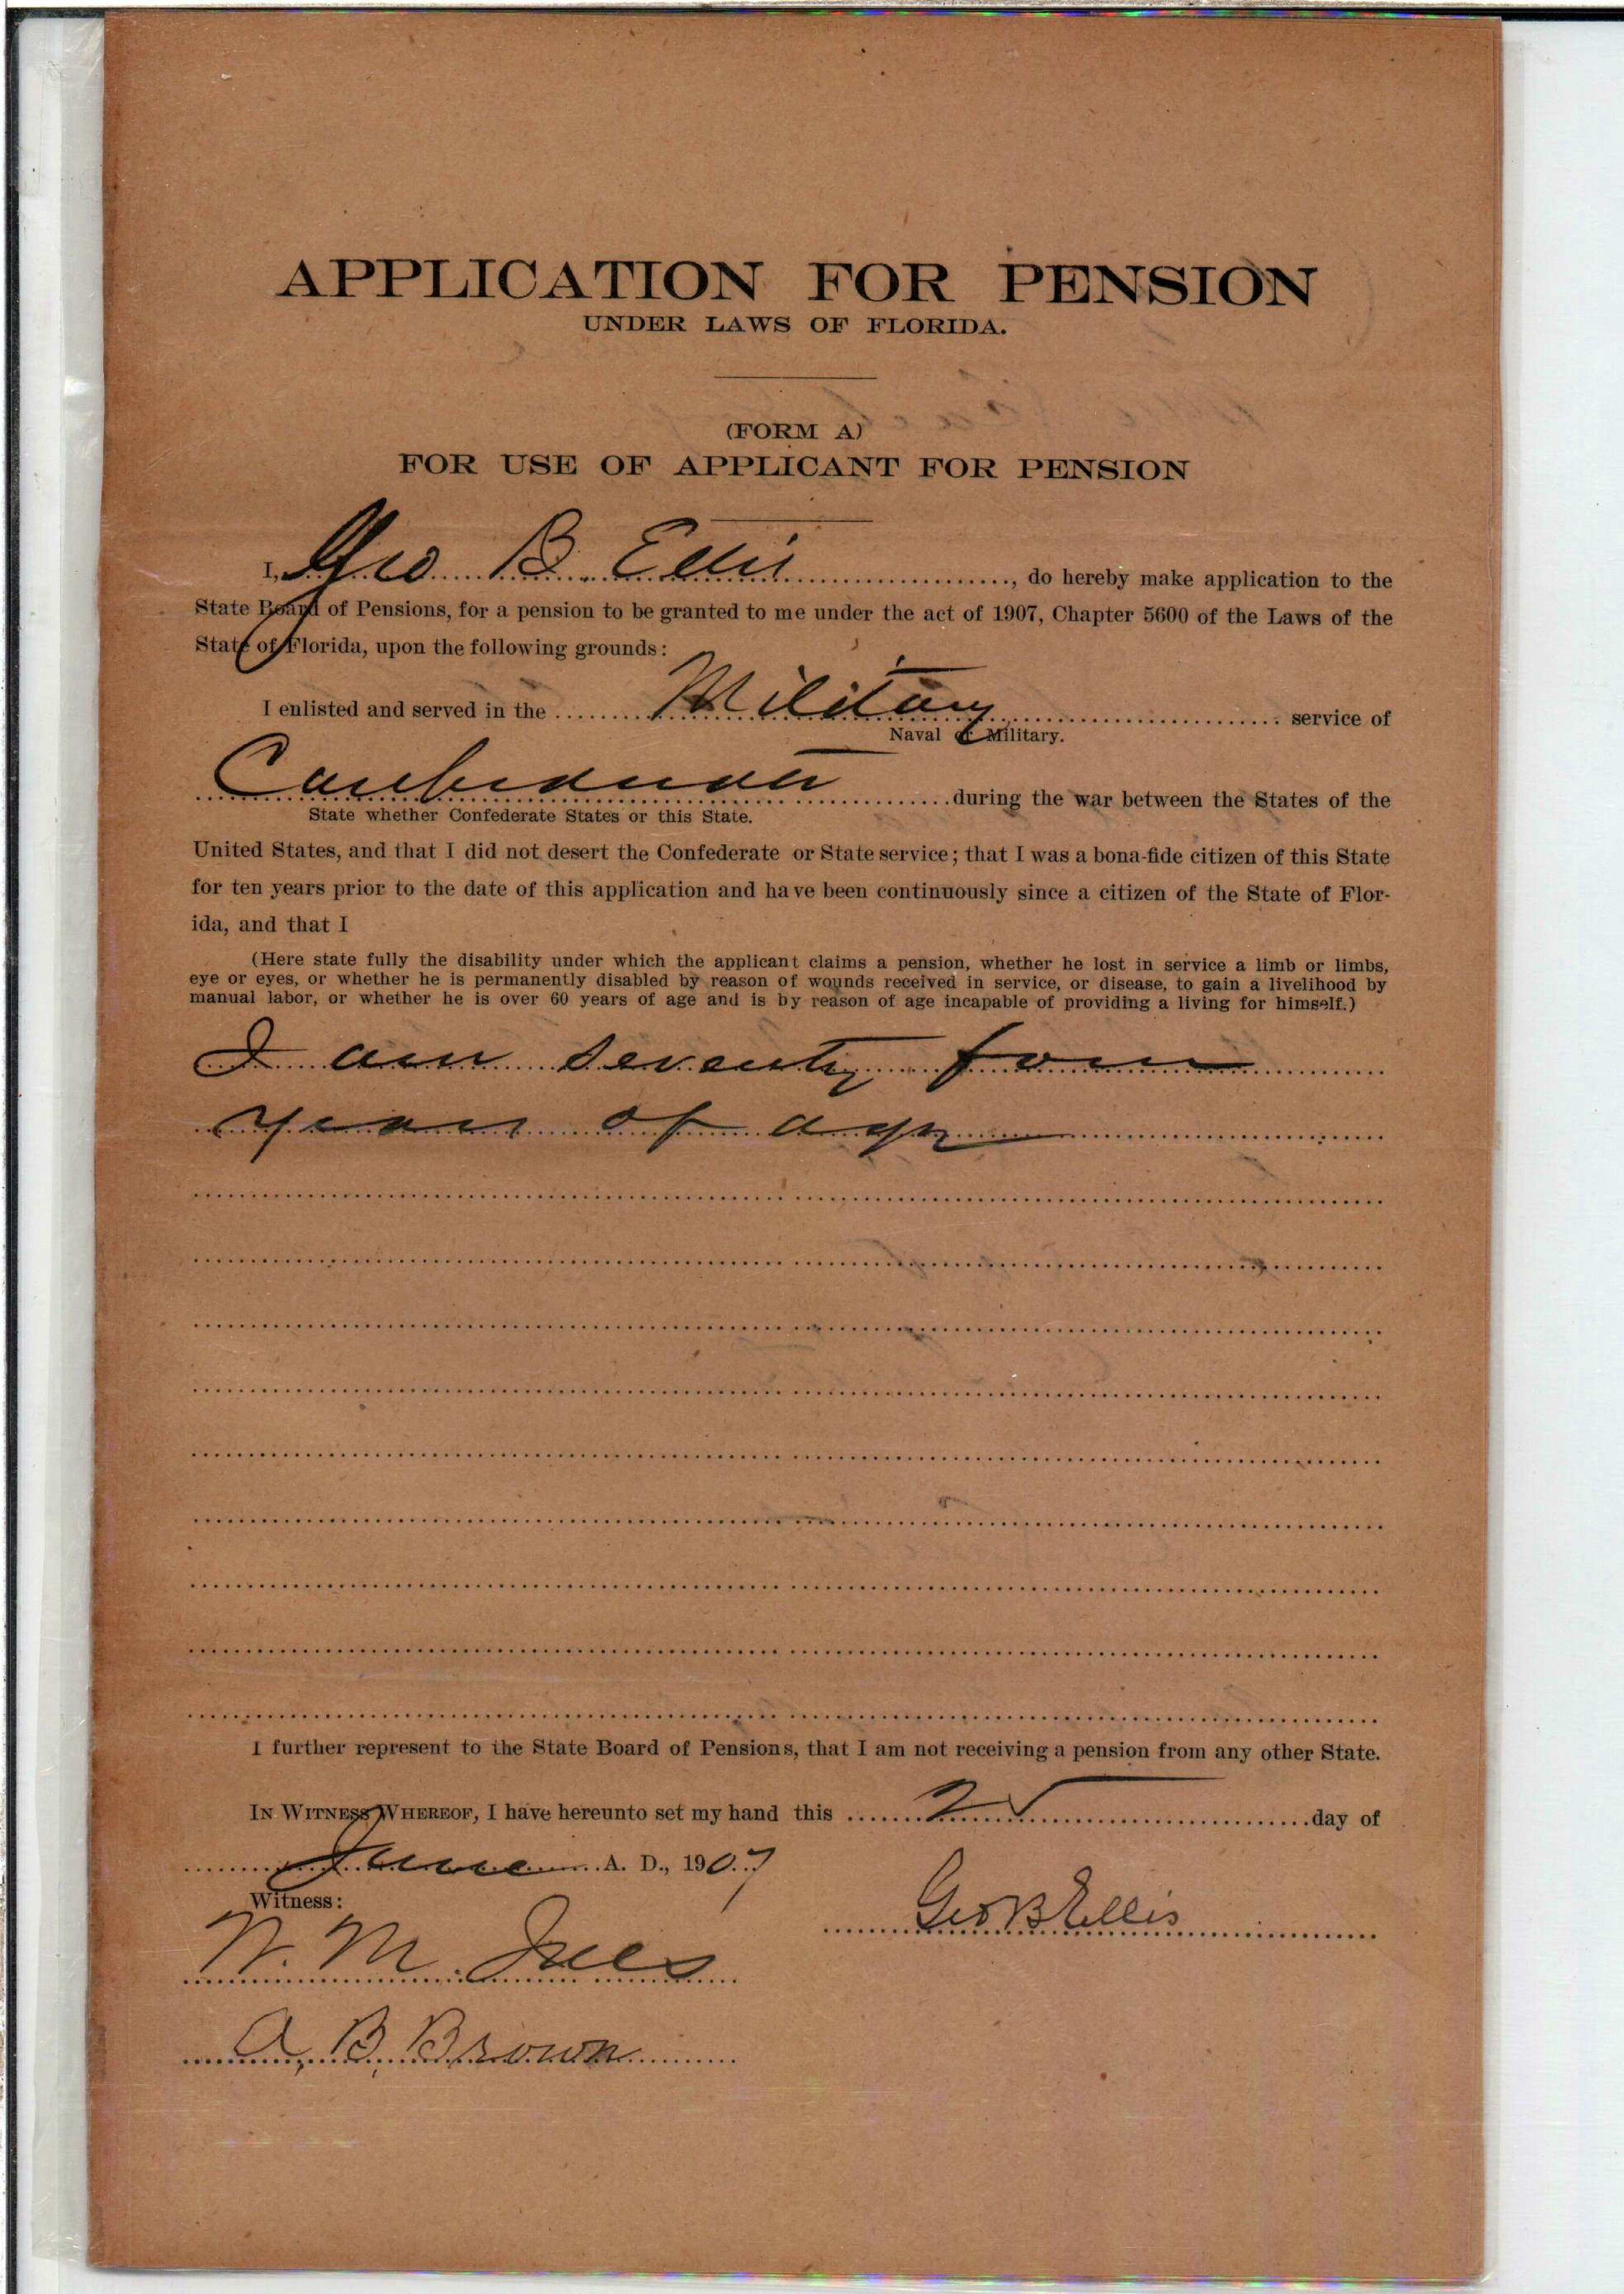 APPLICATION FOR PENSION
UNDER LAWS OF FLORIDA.
(FORM A)
FOR USE OF APPLICANT FOR PENSION
I, Geo B. Ellis, do hereby make application to the
State Board of Pensions, for a pension to be granted to me under the act of 1907, Chapter 5600 of the Laws of the
State of Florida, upon the following grounds:
I enlisted and served in the Military service of
Naval or Military.
during the war between the States of the
State whether Confederate States or this State.
United States, and that I did not desert the Confederate or State service; that I was a bona-fide citizen of this State
for ten years prior to the date of this application and have been continuously since a citizen of the State of Flor-
ida, and that I
(Here state fully the disability under which the applicant claims a pension, whether he lost in service a limb or limbs,
eye or eyes, or whether he is permanently disabled by reason of wounds received in service, or disease, to gain a livelihood by
manual labor, or whether he is over 60 years of age and is by reason of age incapable of providing a living for himself.)
I am seventy four
years of age
I further represent to the State Board of Pensions, that I am not receiving a pension from any other State.
IN WITNESS WHEREOF, I have hereunto set my hand this day of
June A. D., 1907
Witness:
Geo B Ellis
W. M. Ives
A. B. Brown